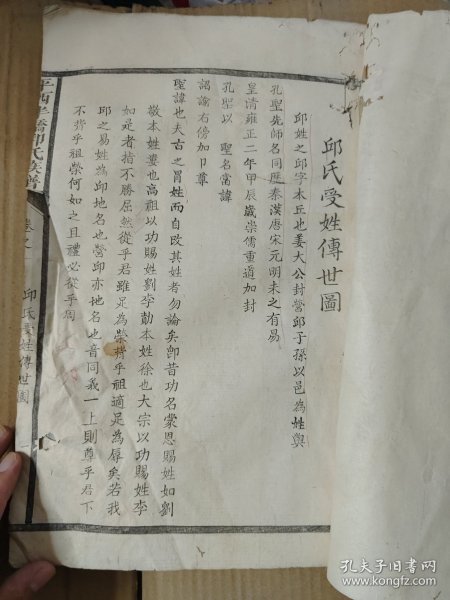 邱氏受姓傳世圖
邱姓之邱字本丘也姜大公封營邱子孫以邑為姓與
孔聖先師名同歷秦漢唐宋元明未之有易
皇清雍正二年甲辰歲崇儒重道加封
孔聖以 聖名當諱
詔諭右傍加卩尊
聖諱也夫古之冒姓而自改其姓者勿論矣即昔功名蒙恩賜姓如劉
敬本姓婁也高祖以功賜姓劉李勣本姓徐也大宗以功賜姓李
如是者指不勝屈然從乎君雖足為榮背乎祖適足為辱矣若我
邱之易姓為邱地名也營邱亦地名也音同義一上則尊乎君下
不背乎祖榮何如之且禮必從乎周
邱氏族譜
卷之
邱氏受姓傳世圖
一
孔夫子旧书网
www.kongfz.com